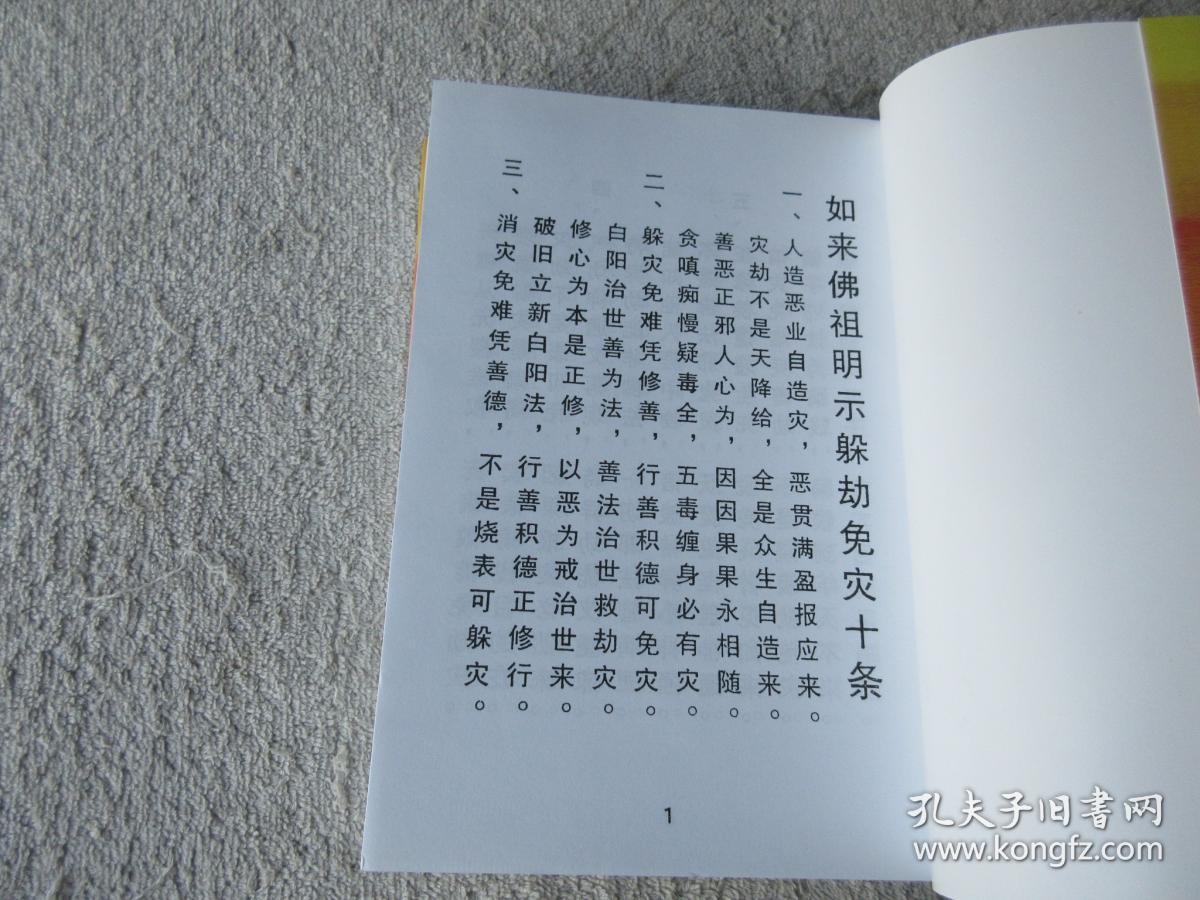 如来佛祖明示躲劫免灾十条
一、人造恶业自造灾，恶贯满盈报应来。
灾劫不是天降给，全是众生自造来。
善恶正邪人心为，因因果果永相随。
贪嗔痴慢疑毒全，五毒缠身必有灾。
二、躲灾免难凭修善，行善积德可免灾。
白阳治世善为法，善法治世救劫灾。
修心为本是正修，以恶为戒治世来。
破旧立新白阳法，行善积德正修行。
三、消灾免难凭善德，不是烧表可躲灾。
1
孔夫子旧书网
www.kongfz.com